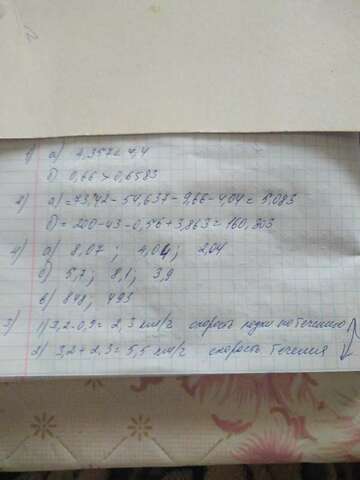 1) а) 4,357 < 4,4
б) 0,66 > 0,6583
2) а) = 73,42 - 54,637 - 9,66 - 4,04 = 5,083
б) = 200 - 43 - 0,56 + 3,863 = 160,303
4) а) 8,07 ; 4,04 ; 2,04
б) 5,7 ; 8,1 ; 3,9
в) 848, 493
3) 1) 3,2 - 0,9 = 2,3 км/г скорость лодки по течению
2) 3,2 + 2,3 = 5,5 км/г скорость течения